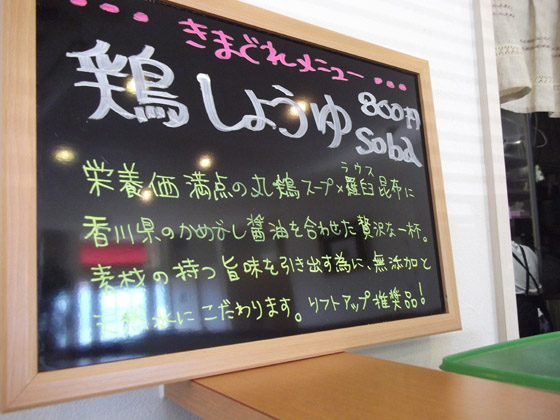 きまぐれメニュー
鶏しょうゆ 800円
Soba
栄養価満点の丸鶏スープ×羅臼昆布に
ラウス
香川県のかめびし醤油を合わせた贅沢な一杯。
素材の持つ旨味を引き出す為に、無添加と
水にこだわります。リフトアップ推奨品!